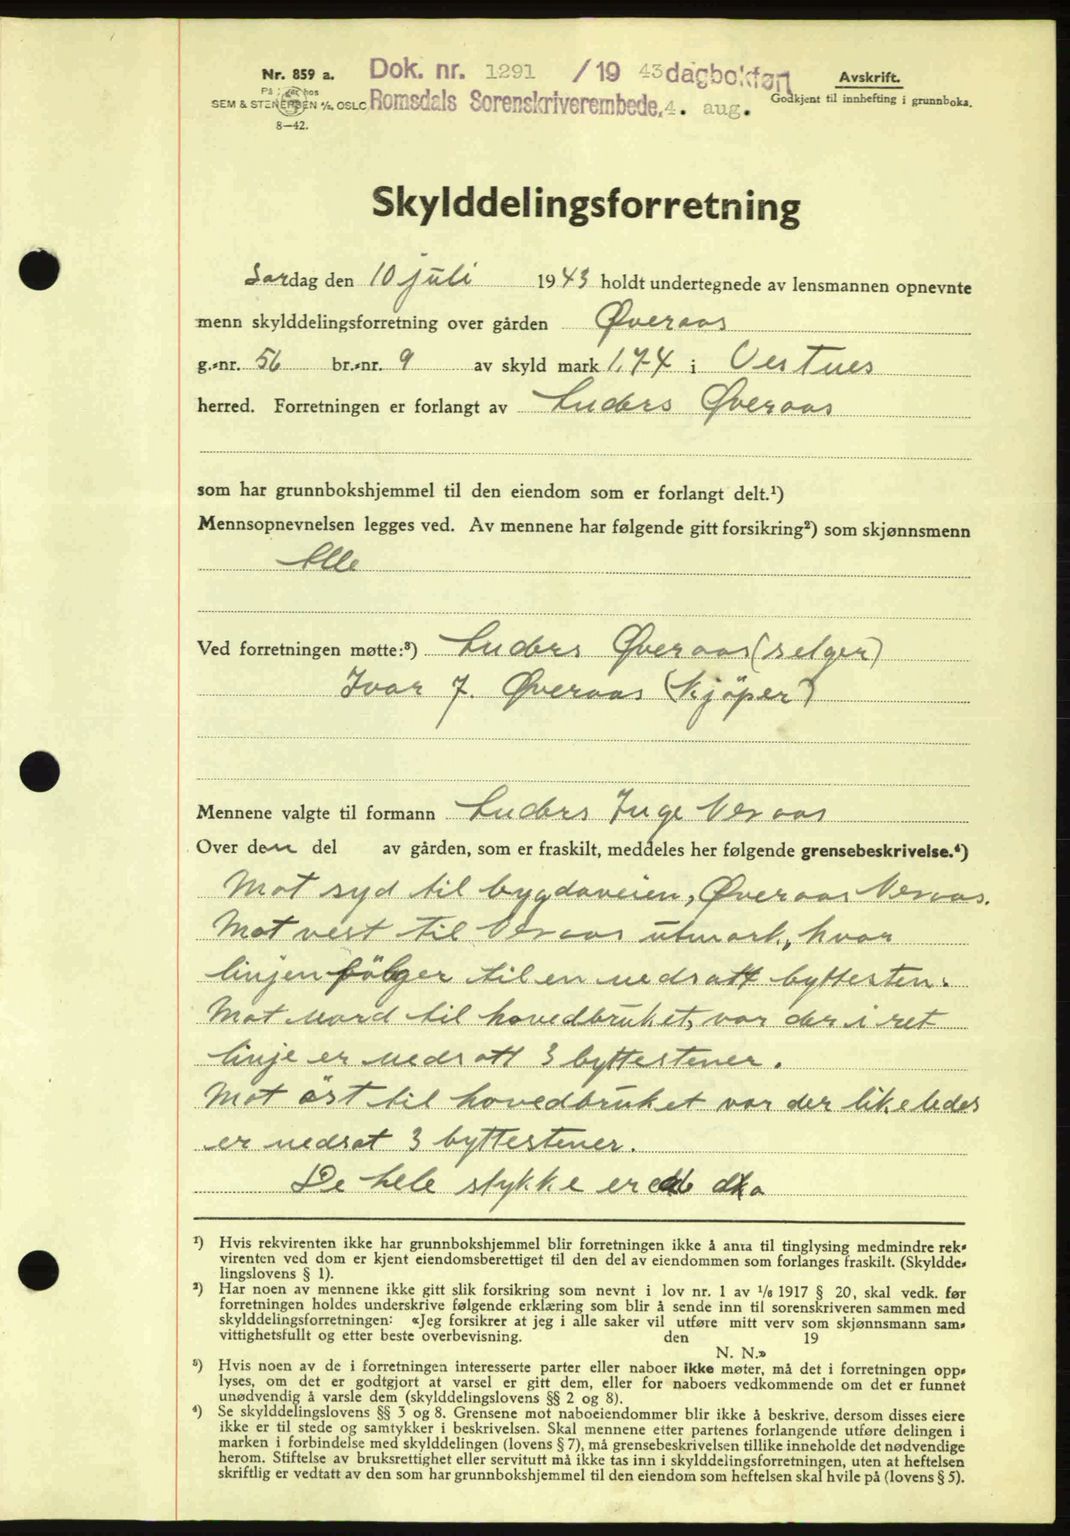 Nr. 859 a.
På lager hos
SEM & STENERSEN A/S. OSLO
8—42.
Dok. nr. 1291 /19 43 dagbokført
Romsdals Sorenskriverembede, 4. aug.
Avskrift.
Godkjent til innhefting i grunnboka.
Skylddelingsforretning
Lørdag den 10 juli 1943 holdt undertegnede av lensmannen opnevnte
menn skylddelingsforretning over gården Øveraas
g.-nr. 56 br.-nr. 9 av skyld mark 1,74 i Vestnes
herred. Forretningen er forlangt av Anders Øveraas
som har grunnbokshjemmel til den eiendom som er forlangt delt.¹)
Mennsopnevnelsen legges ved. Av mennene har følgende gitt forsikring²) som skjønnsmenn
Alle
Ved forretningen møtte:³) Anders Øveraas (selger)
Ivar J. Øveraas (kjöper)
Mennene valgte til formann Anders Inge Veraas
Over den del av gården, som er fraskilt, meddeles her følgende grensebeskrivelse.⁴)
Mot syd til bygdaveien, Øveraas Veraas.
Mot vest til Veraas utmark, hvor
linjen följger til en nedsatt byttesten.
Mot nord til hovedbruket, var der i ret
linje er nedsatt 3 byttestener.
Mot öst til hovedbruket var der likeledes
er nedsat 3 byttestener.
De hele stykke er dka
¹) Hvis rekvirenten ikke har grunnbokshjemmel blir forretningen ikke å anta til tinglysing medmindre rek-
virenten ved dom er kjent eiendomsberettiget til den del av eiendommen som forlanges fraskilt. (Skyldde-
lingslovens § 1).
²) Har noen av mennene ikke gitt slik forsikring som nevnt i lov nr. 1 av 1/6 1917 § 20, skal vedk. før
forretningen holdes underskrive følgende erklæring som blir å sende inn til sorenskriveren sammen med
skylddelingsforretningen: «Jeg forsikrer at jeg i alle saker vil utføre mitt verv som skjønnsmann sam-
vittighetsfullt og etter beste overbevisning. den 19
N. N.»
³) Hvis noen av de i forretningen interesserte parter eller naboer ikke møter, må det i forretningen opp-
lyses, om det er godtgjort at varsel er gitt dem, eller for naboers vedkommende om det er funnet
unødvendig å varsle dem (skylddelingslovens §§ 2 og 8).
⁴) Se skylddelingslovens §§ 3 og 8. Grensene mot naboeiendommer blir ikke å beskrive, dersom disses eiere
ikke er til stede og samtykker i beskrivelsen. Skal mennene etter partenes forlangende utføre delingen i
marken i forbindelse med skylddelingen (lovens § 7), må grensebeskrivelsen tillike inneholde det nødvendige
herom. Stiftelse av bruksrettighet eller servitutt må ikke tas inn i skylddelingsforretningen, uten at heftelsen
skriftlig er vedtatt av den som har grunnbokshjemmel til den eiendom som heftelsen skal hvile på (lovens § 5).